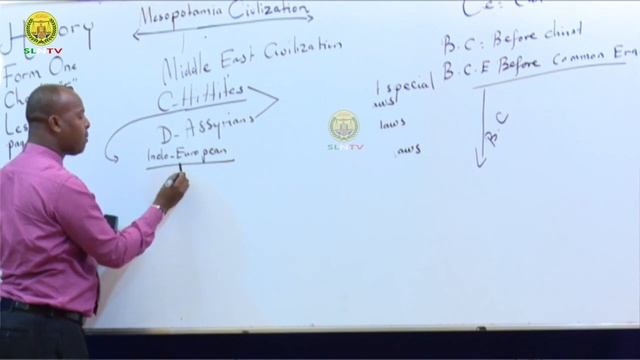 SLNTV
History
Form One
Less
Mesopotamia Civilization
Middle East Civilization
C-Hittites
D-Assyrians
Indo-European
1 special
laws
laws
laws
SLNTV
B.C: Before
B.C.E Before Common Era
B.C